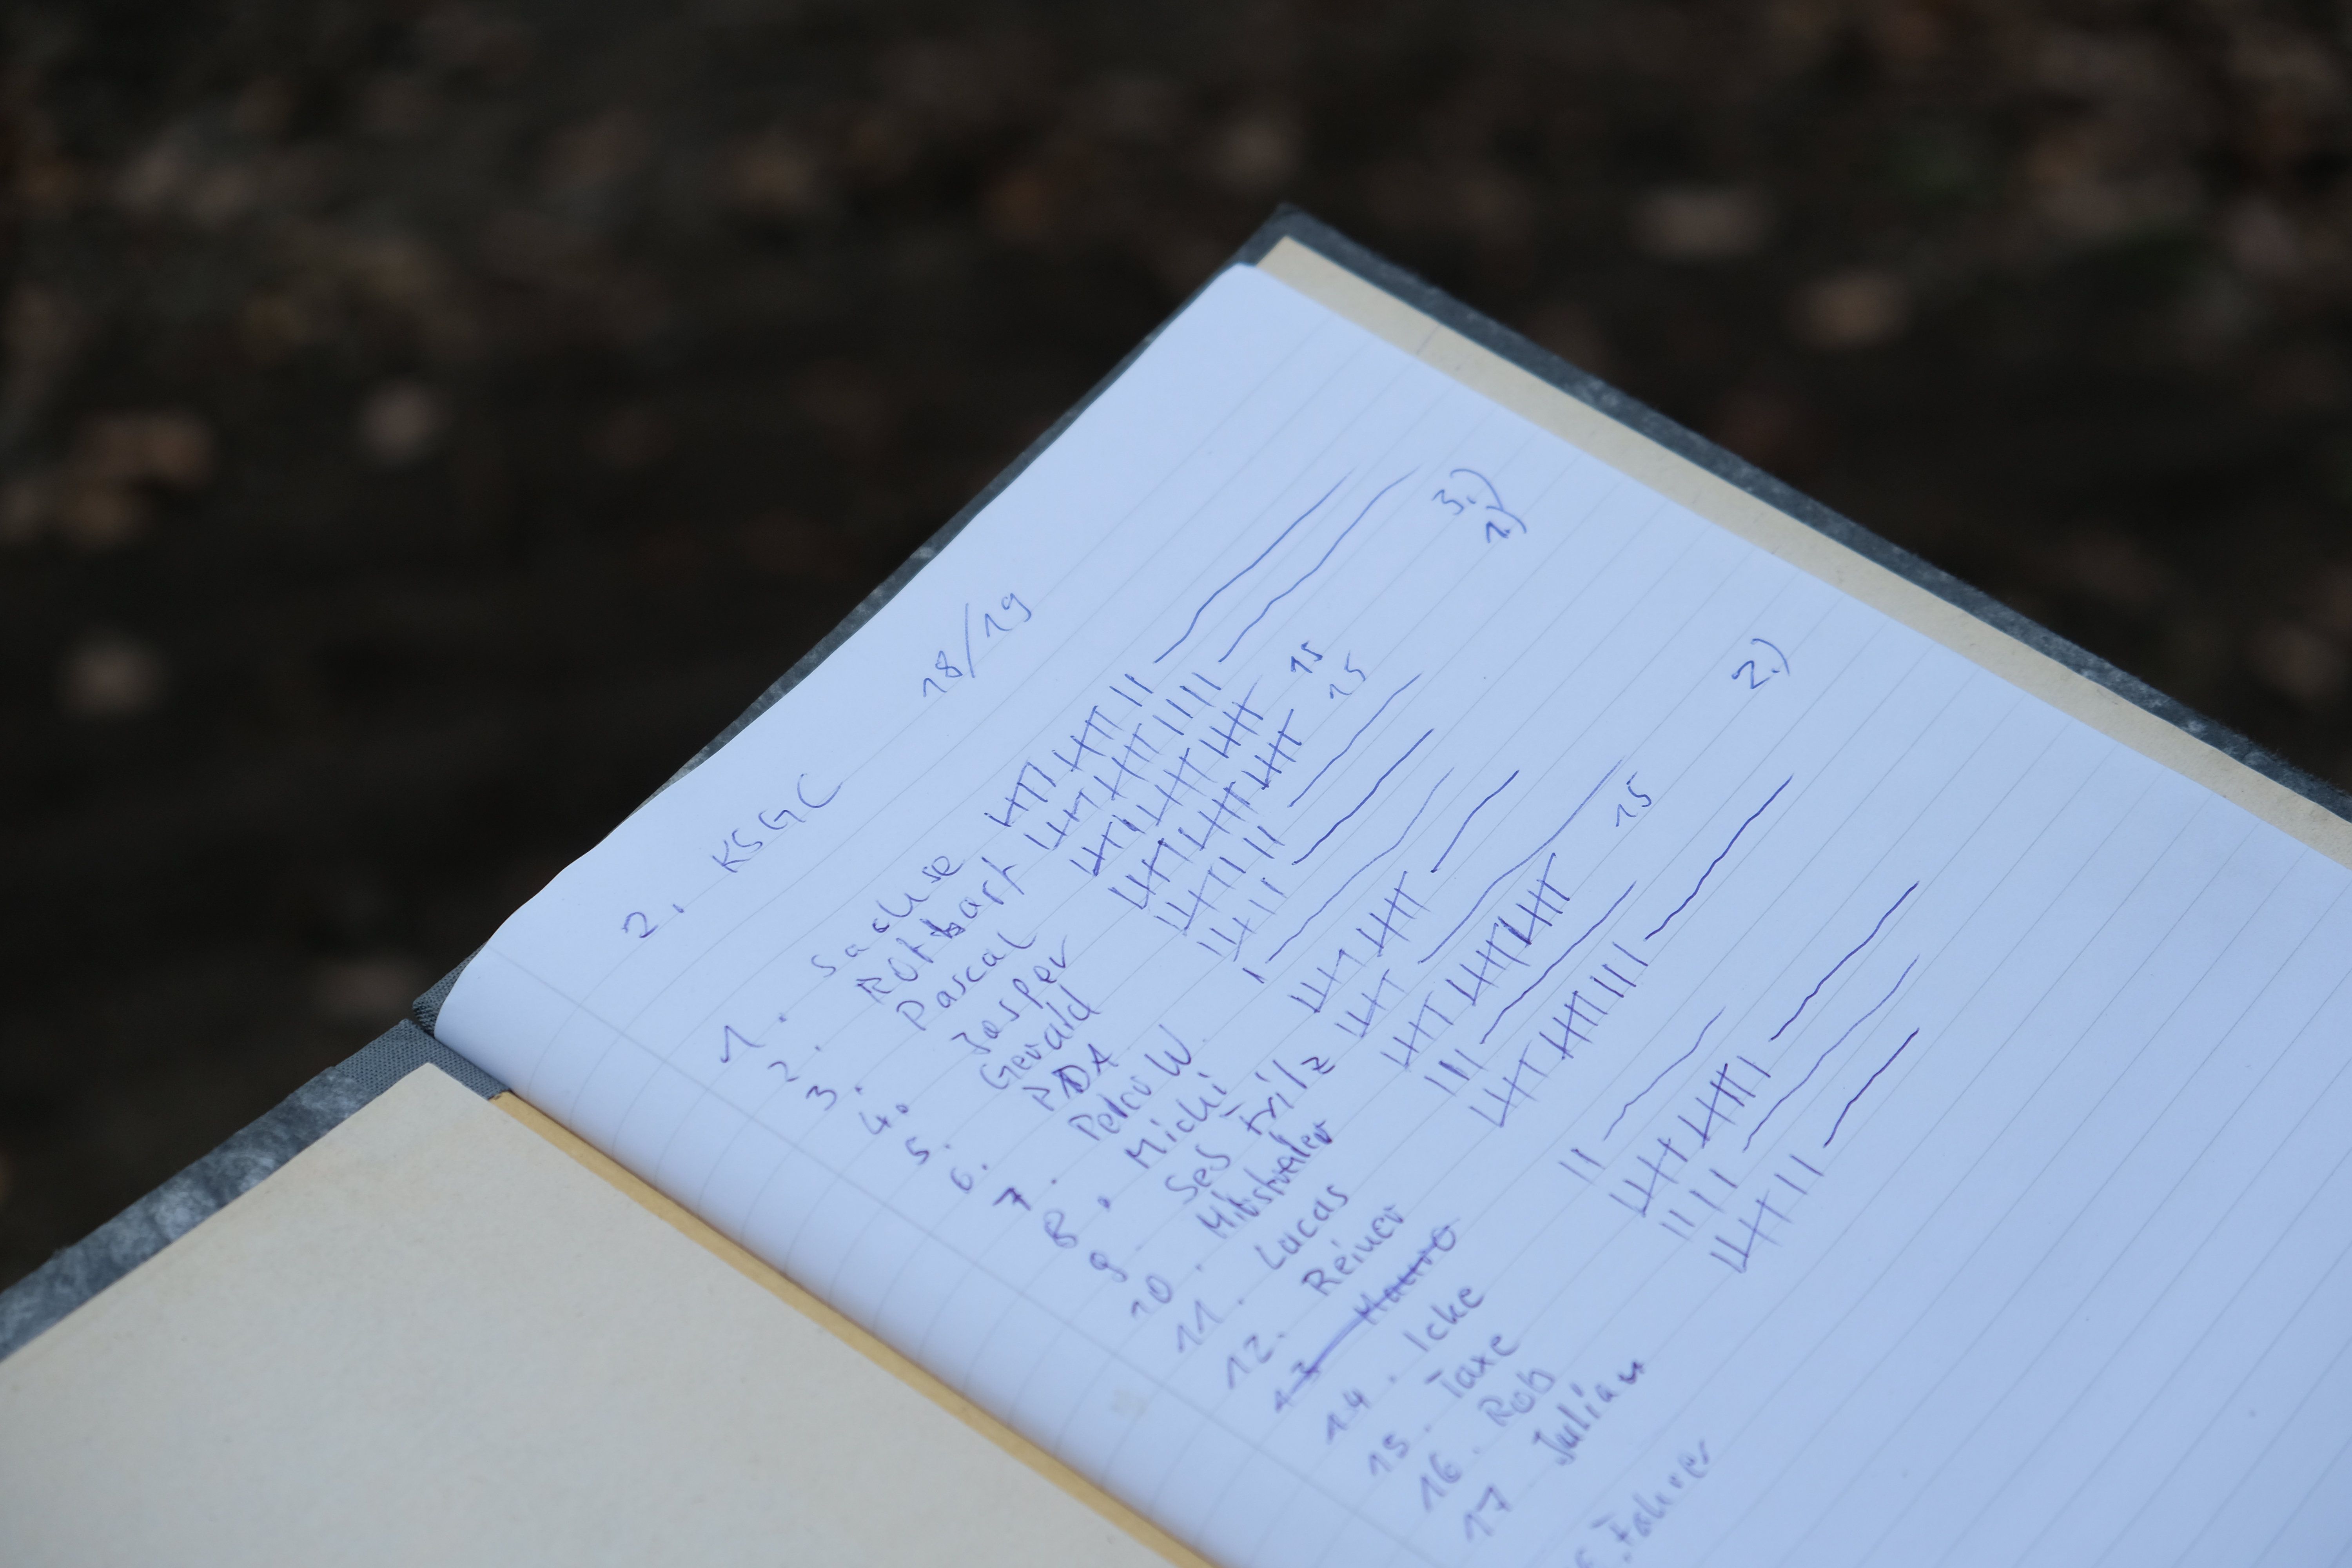 2. KSGC 18/19
1. Sachse
2. Rotbart 3.)
3. Pascal 15 1.)
4. Jasper 15
5. Gerald
6. PDA
7. Peter W.
8. Michi
9. Ses Frilz
10. 15 2.)
11. Lucas
12. Reiner
13 Mauro
14. Icke
15. Taxe
16. Rob
17 Julian
Fahrer